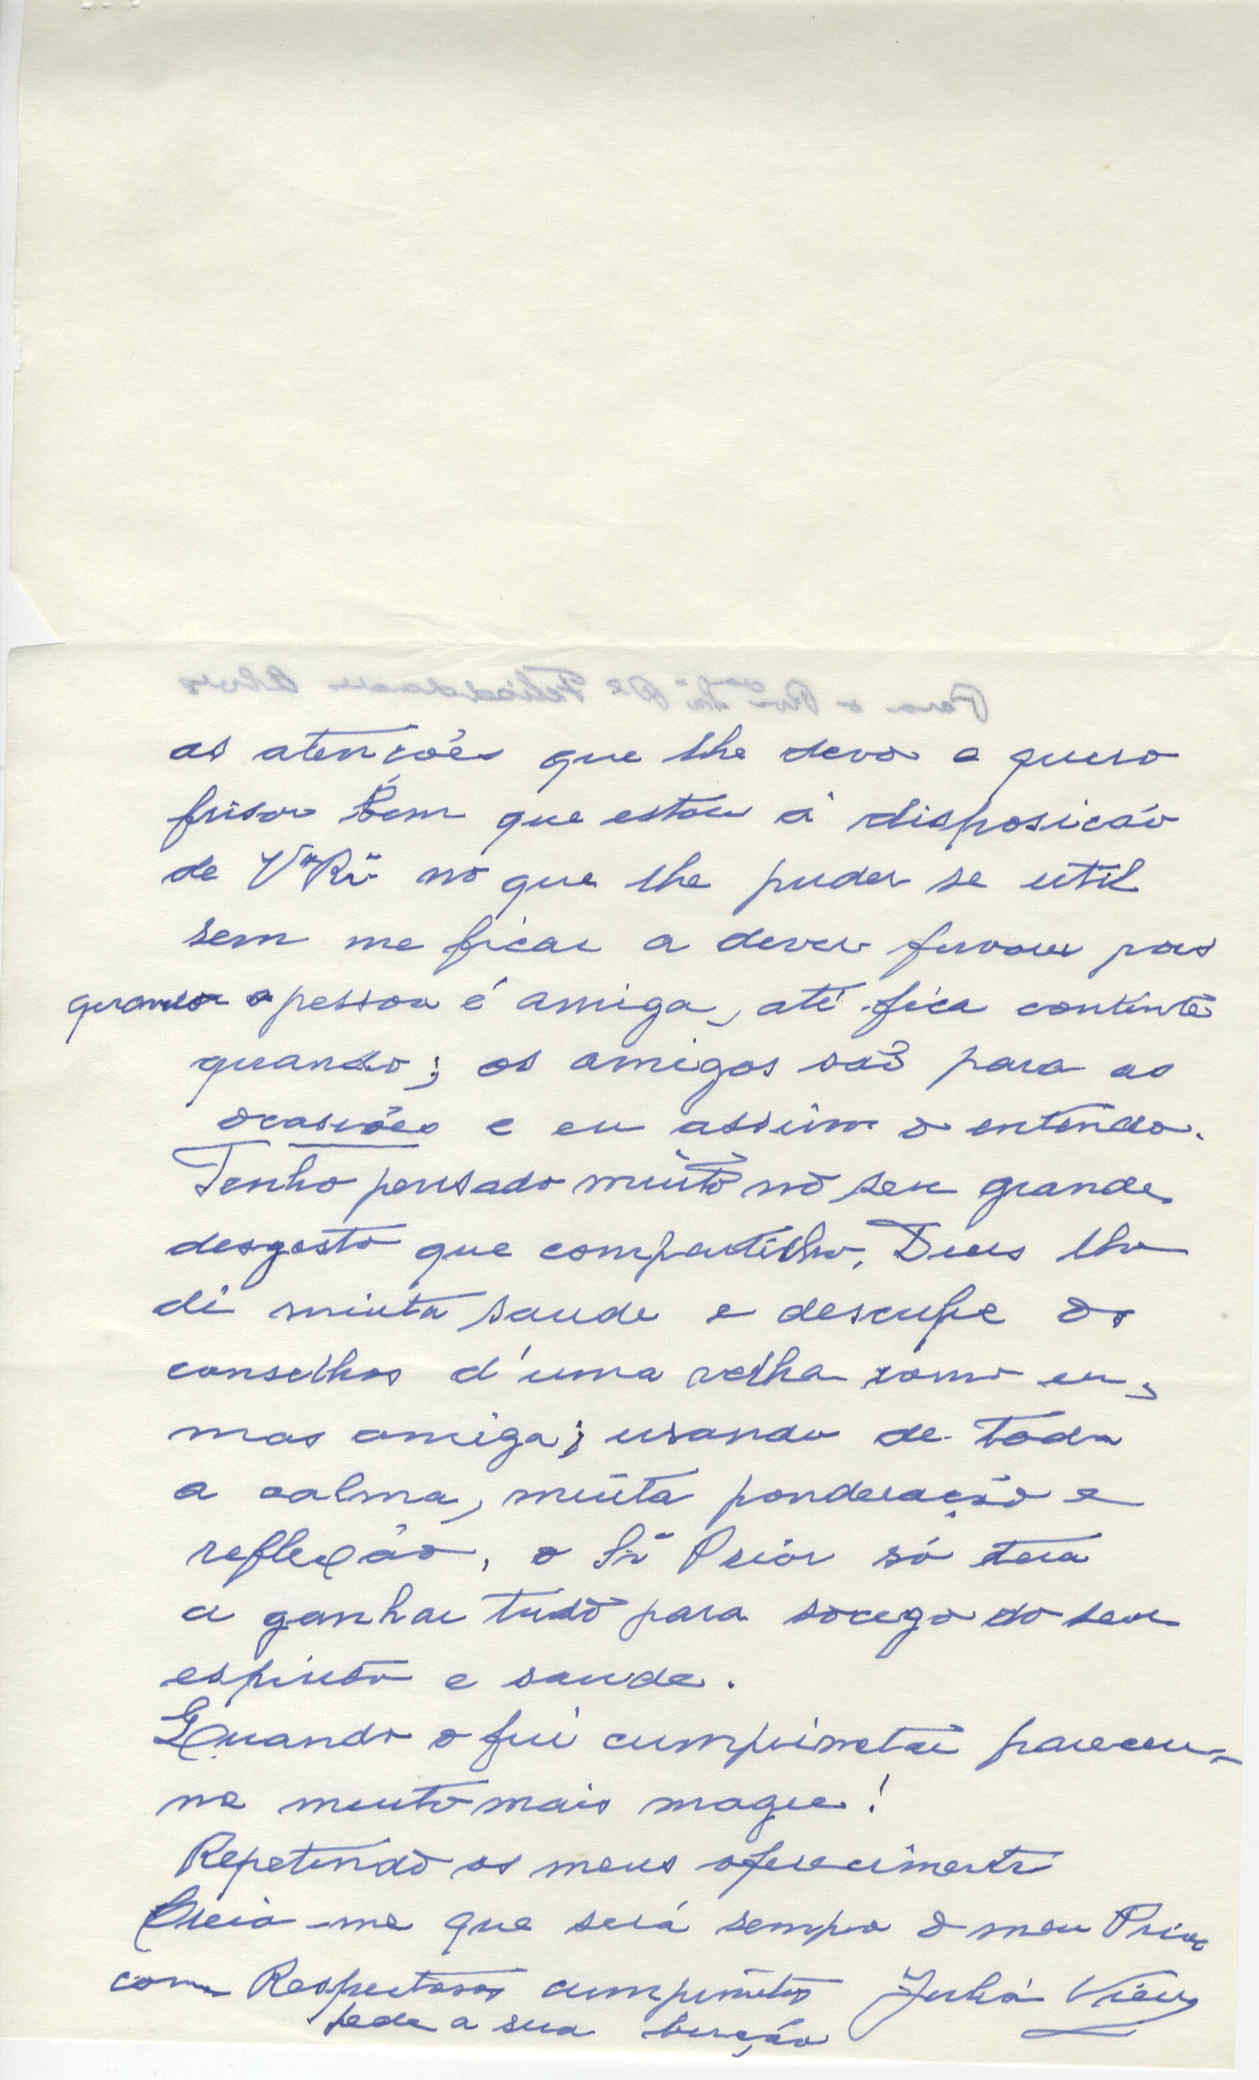 Para o Rev. Sr. Pe. Felicidade Alves
as atenções que lhe devo e quero
frisar bem que estou á disposição
de Vª Rª no que lhe puder se util
sem me ficar a dever favores pois
quando a pessoa é amiga, até fica contente
quando; os amigos são para as
ocasiões e eu assim o entendo.
Tenho pensado muito no seu grande
desgosto que compartilho. Deus lhe
dê muita saude e desculpe os
conselhos d'uma velha como eu,
mas amiga; usando de toda
a calma, muita ponderação e
reflexão, o Sr. Prior só tera
a ganhar tudo para socego do seu
espirito e saude.
Quando o fui cumprimentar pareceu-
me muito mais magro!
Repetindo os meus oferecimentos
Creia-me que será sempre o meu Prior
com Respeitosos cumprimentos Julia
pede a sua benção